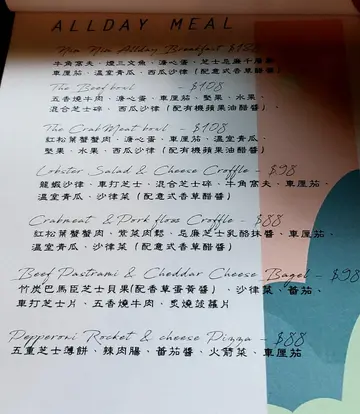 ALLDAY MEAL
Nia Nia Allday Breakfast $158
牛角窩夫、煙三文魚、溏心蛋、芝士
車厘茄、溫室青瓜、西瓜沙律（配意式香草醋醬）
The Beef bowl - $108
五香燒牛肉、溏心蛋、車厘茄、堅果、水果、
混合芝士碎、西瓜沙律（配有機蘋果油醋醬）、
The Crab Meat bowl - $108
紅松葉蟹蟹肉、溏心蛋、車厘茄、溫室青瓜、
堅果、水果、西瓜沙律（配有機蘋果油醋醬）
Lobster Salad & Cheese Croffle - $98
龍蝦沙律、車打芝士、混合芝士碎、牛角窩夫、車厘茄、
溫室青瓜、沙律菜（配意式香草醋醬）
Crabmeat & Pork floss Croffle - $88
紅松葉蟹蟹肉、紫菜肉鬆、忌廉芝士乳酪抹醬、車厘茄、
溫室青瓜、沙律菜（配意式香草醋醬）
Beef Pastrami & Cheddar Cheese Bagel - $98
竹炭巴馬臣芝士貝果(配香草蛋黃醬）、沙律菜、蕃茄、
車打芝士片、五香燒牛肉、炙燒菠蘿片
Pepperoni Rocket & cheese Pizza - $88
五重芝士薄餅、辣肉腸、蕃茄醬、火箭菜、車厘茄